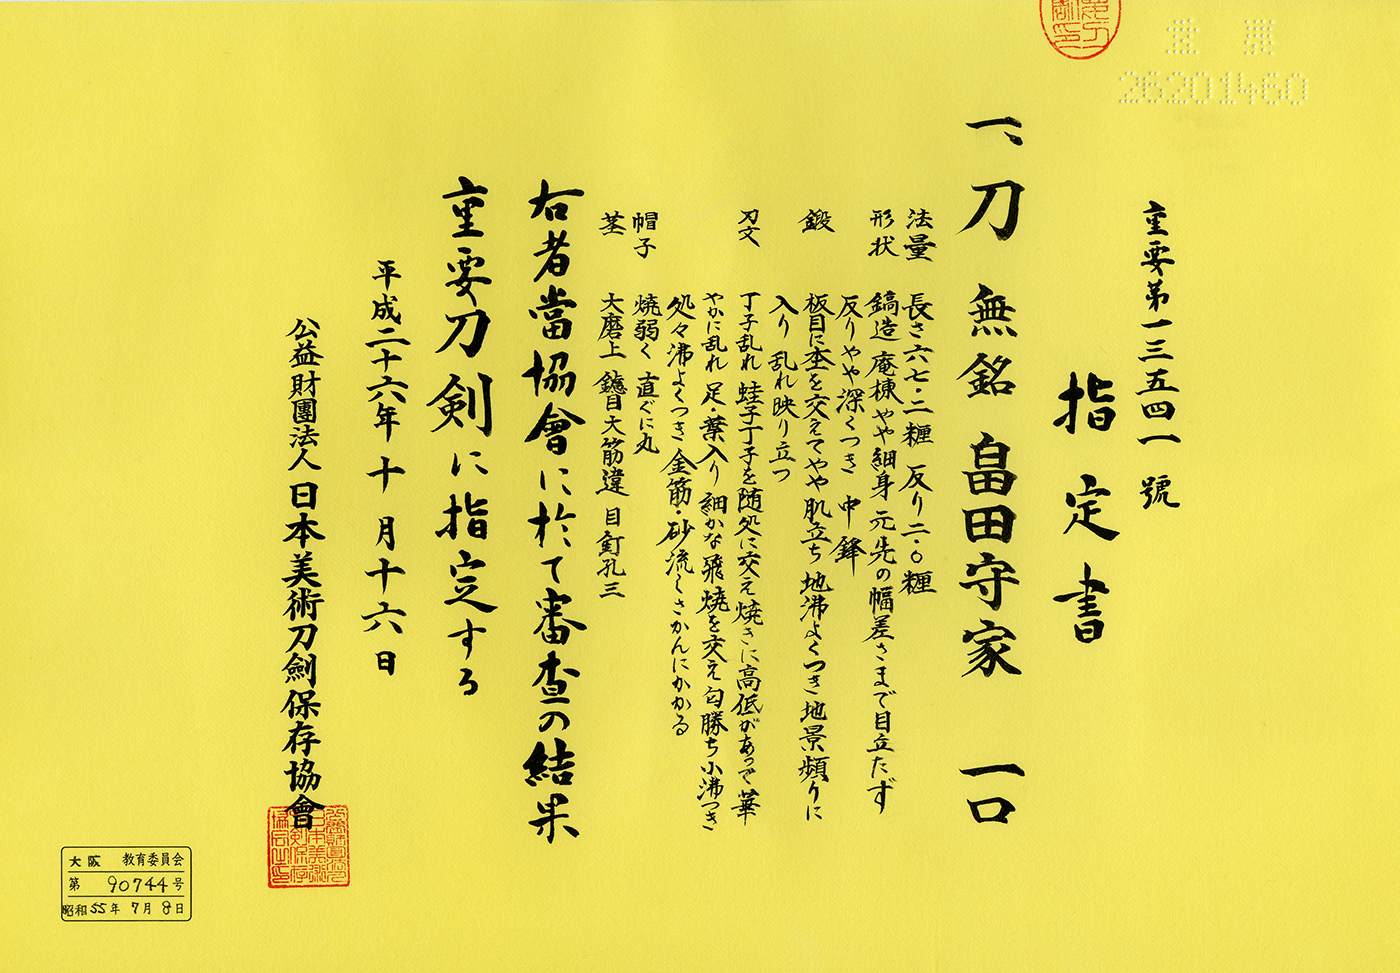 重要第一三五四一號
指定書
一、刀 無銘 畠田守家 一口
法量 長さ六七・二糎 反り二・〇糎
形状 鎬造 庵棟 やや細身 元先の幅差さまで目立たず
反りやや深くつき 中鋒
鍛 板目に杢を交えてやや肌立ち 地沸よくつき 地景頻りに
入り 乱れ映り立つ
刃文 丁子乱れ 蛙子丁子を随処に交え 焼きに高低があって華
やかに乱れ 足・葉入り 細かな飛焼を交え 匂勝ち小沸つき
処々沸よくつき 金筋・砂流しさかんにかかる
帽子 焼弱く 直ぐに丸
茎 大磨上 鑢目大筋違 目釘孔三
右者當協會に於て審査の結果
重要刀剣に指定する
平成二十六年十月十六日
公益財團法人日本美術刀劍保存協會
26201460
大阪 教育委員会
第 90744号
昭和55年7月8日